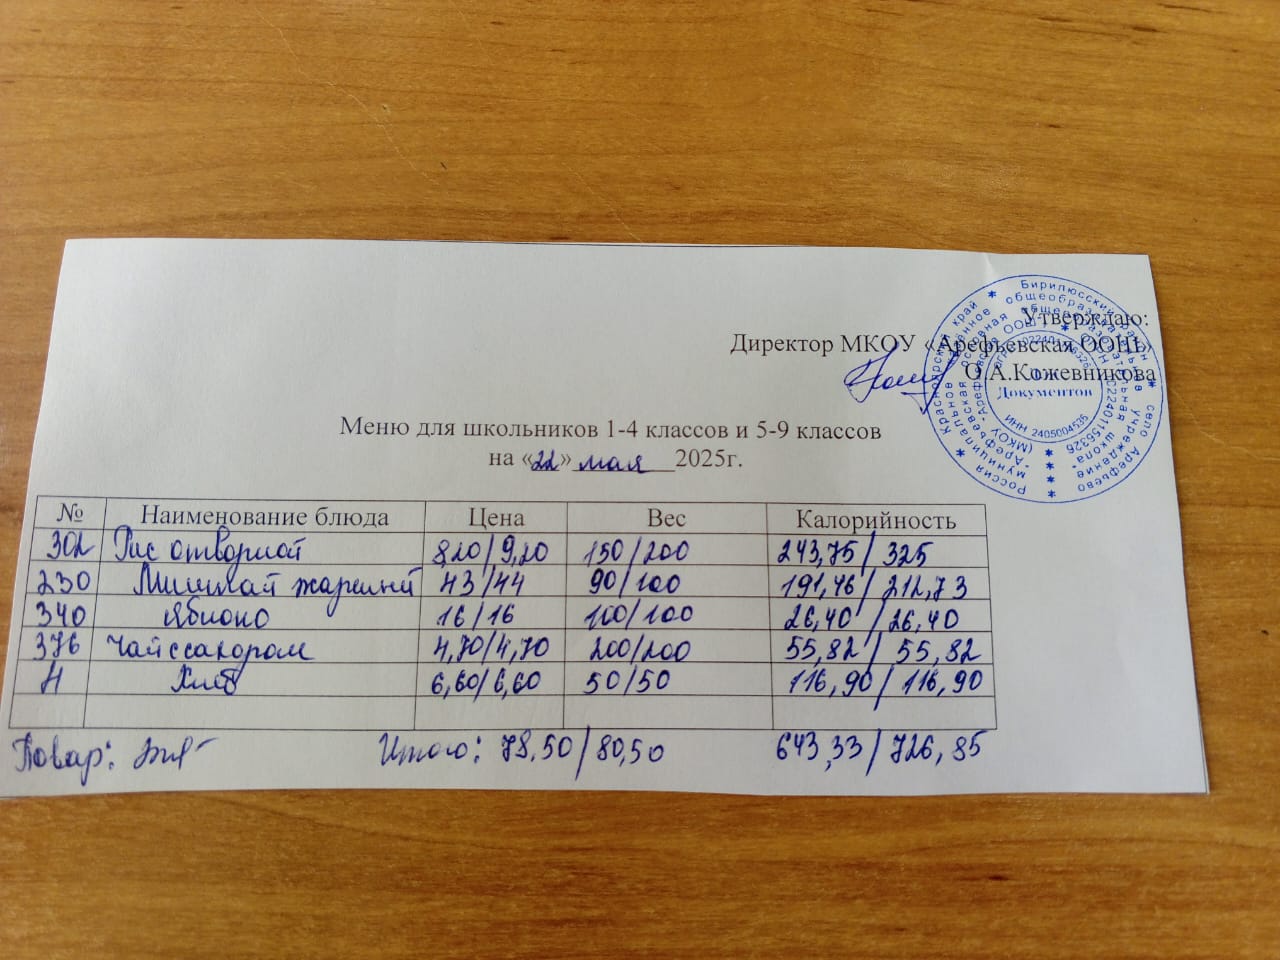 Утверждаю:
Директор МКОУ «Арефьевская ООШ»
О.А.Кожевникова
Документов
ИНН 2405004535
Меню для школьников 1-4 классов и 5-9 классов
на «22» мая 2025г.
№ Наименование блюда Цена Вес Калорийность
302 Рис отварной 8,20/9,20 150/200 243,75/325
230 Минтай жареный 43/44 90/100 191,46/212,73
340 Яблоко 16/16 100/100 26,40/26,40
376 Чай с сахаром 4,70/4,70 200/200 55,82/55,82
Н Хлеб 6,60/6,60 50/50 116,90/116,90
Повар: Итого: 78,50/80,50 643,33/726,85